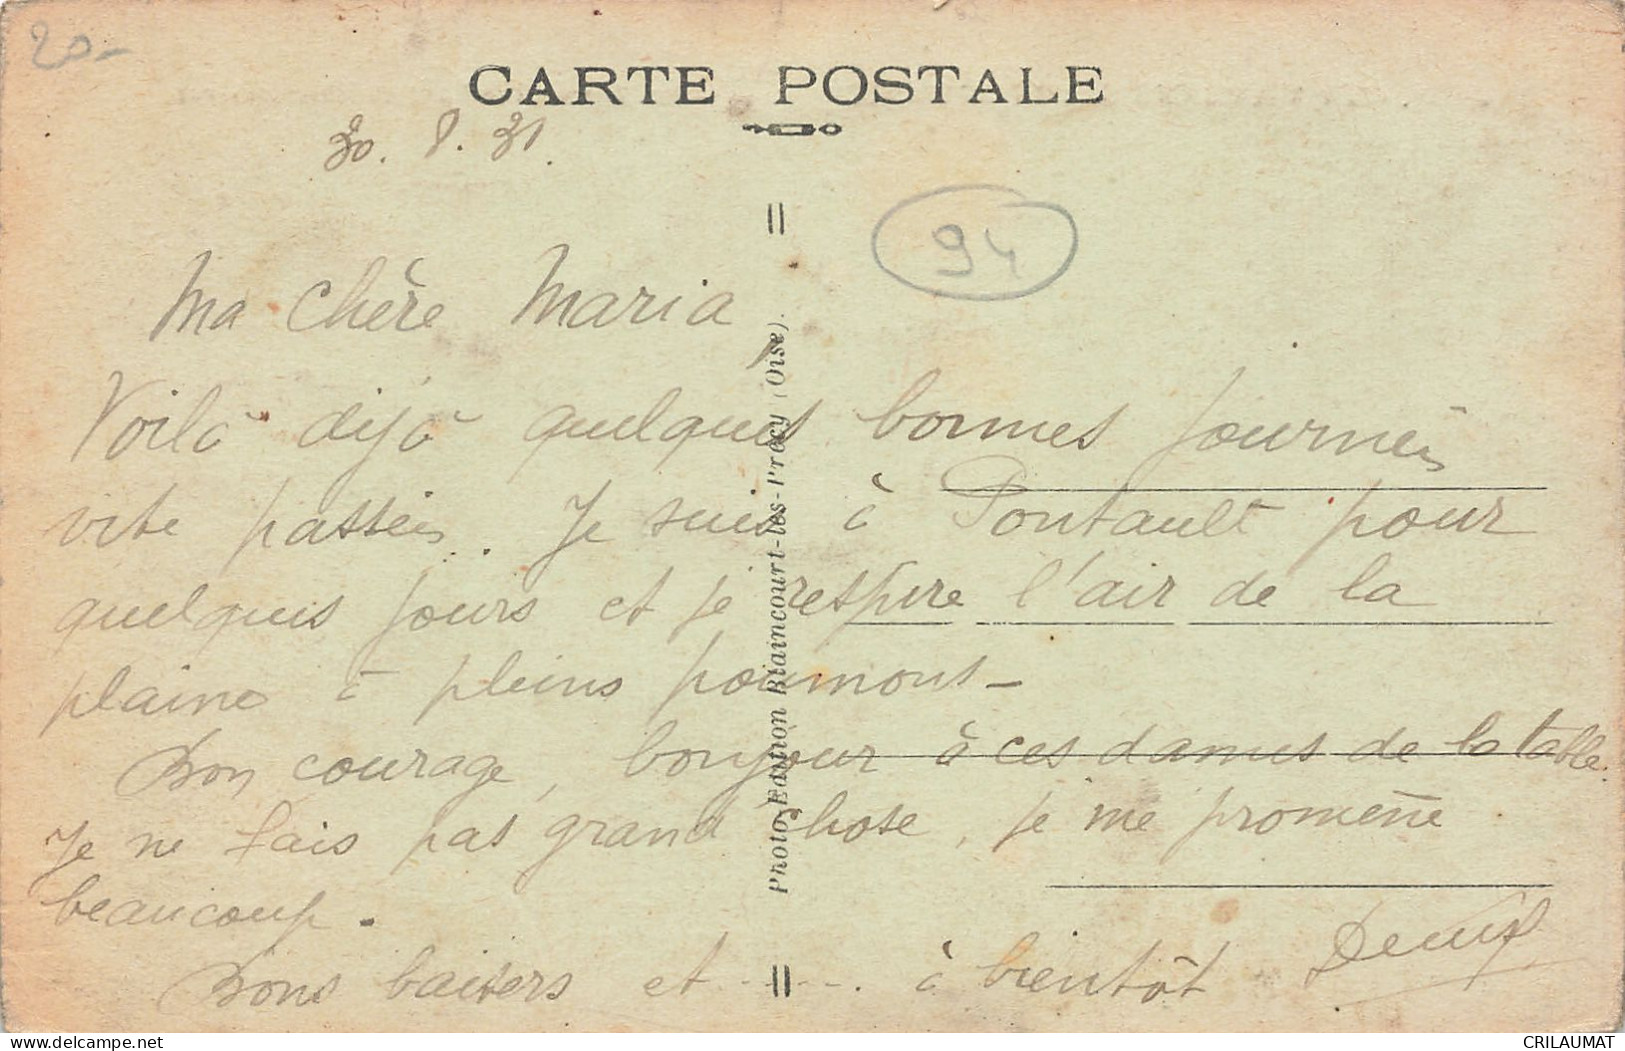 20-
CARTE POSTALE
30. 8. 31.
94
Ma chère Maria,
Voilà déjà quelques bonnes journées
vite passées. Je suis à Pontault pour
quelques jours et je respire l'air de la
plaine à pleins poumons -
Bon courage, bonjour à ces dames de la table.
Je ne fais pas grand chose, je me promène
beaucoup.
Bons baisers et ...... à bientôt
Photo-Edition Blaincourt-les-Précy (Oise).
CRILAUMAT